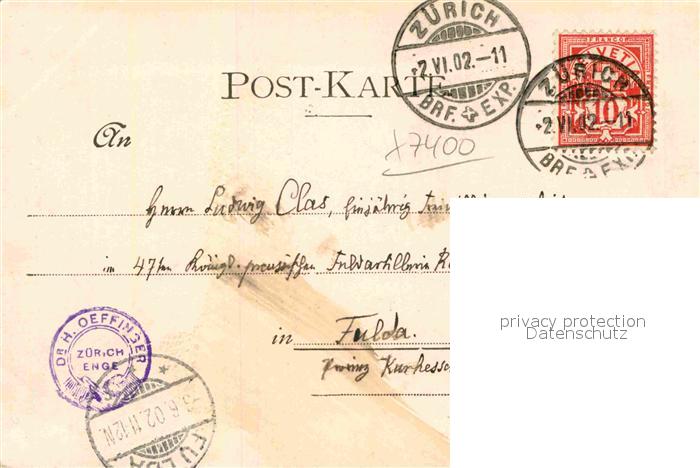 ZÜRICH
-2.VI.02.-11
BRF. EXP.
FRANCO
HELVETIA
10
ZÜRICH
-2.VI.02.-11
BRF. EXP.
POST-KARTE
X7400
An
Herrn Ludwig Clas, einjährig
im 47ten Königl. preussischen Feldartillerie
in Fulda.
Provinz Kurhess
DR H. OEFFINGER
ZÜRICH
ENGE
3.6.02.11-12N.
FULDA
privacy protection
Datenschutz